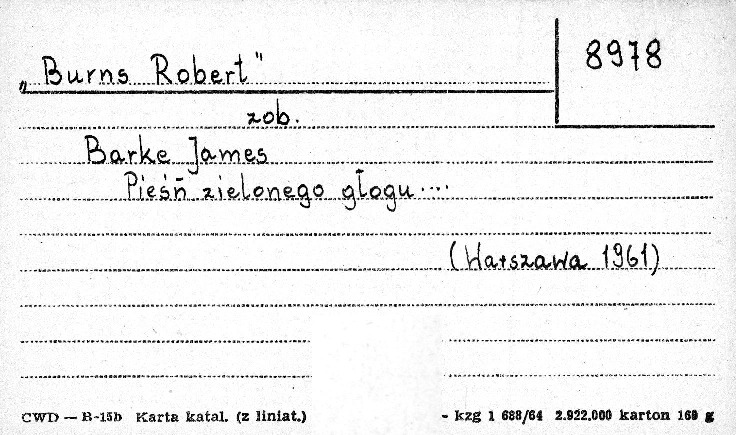 „Burns Robert"
8978
zob.
Barke James
Pieśń zielonego głogu....
(Warszawa 1961)
CWD — B-15b Karta katal. (z liniat.)
- kzg 1 688/64 2.922.000 karton 160 g